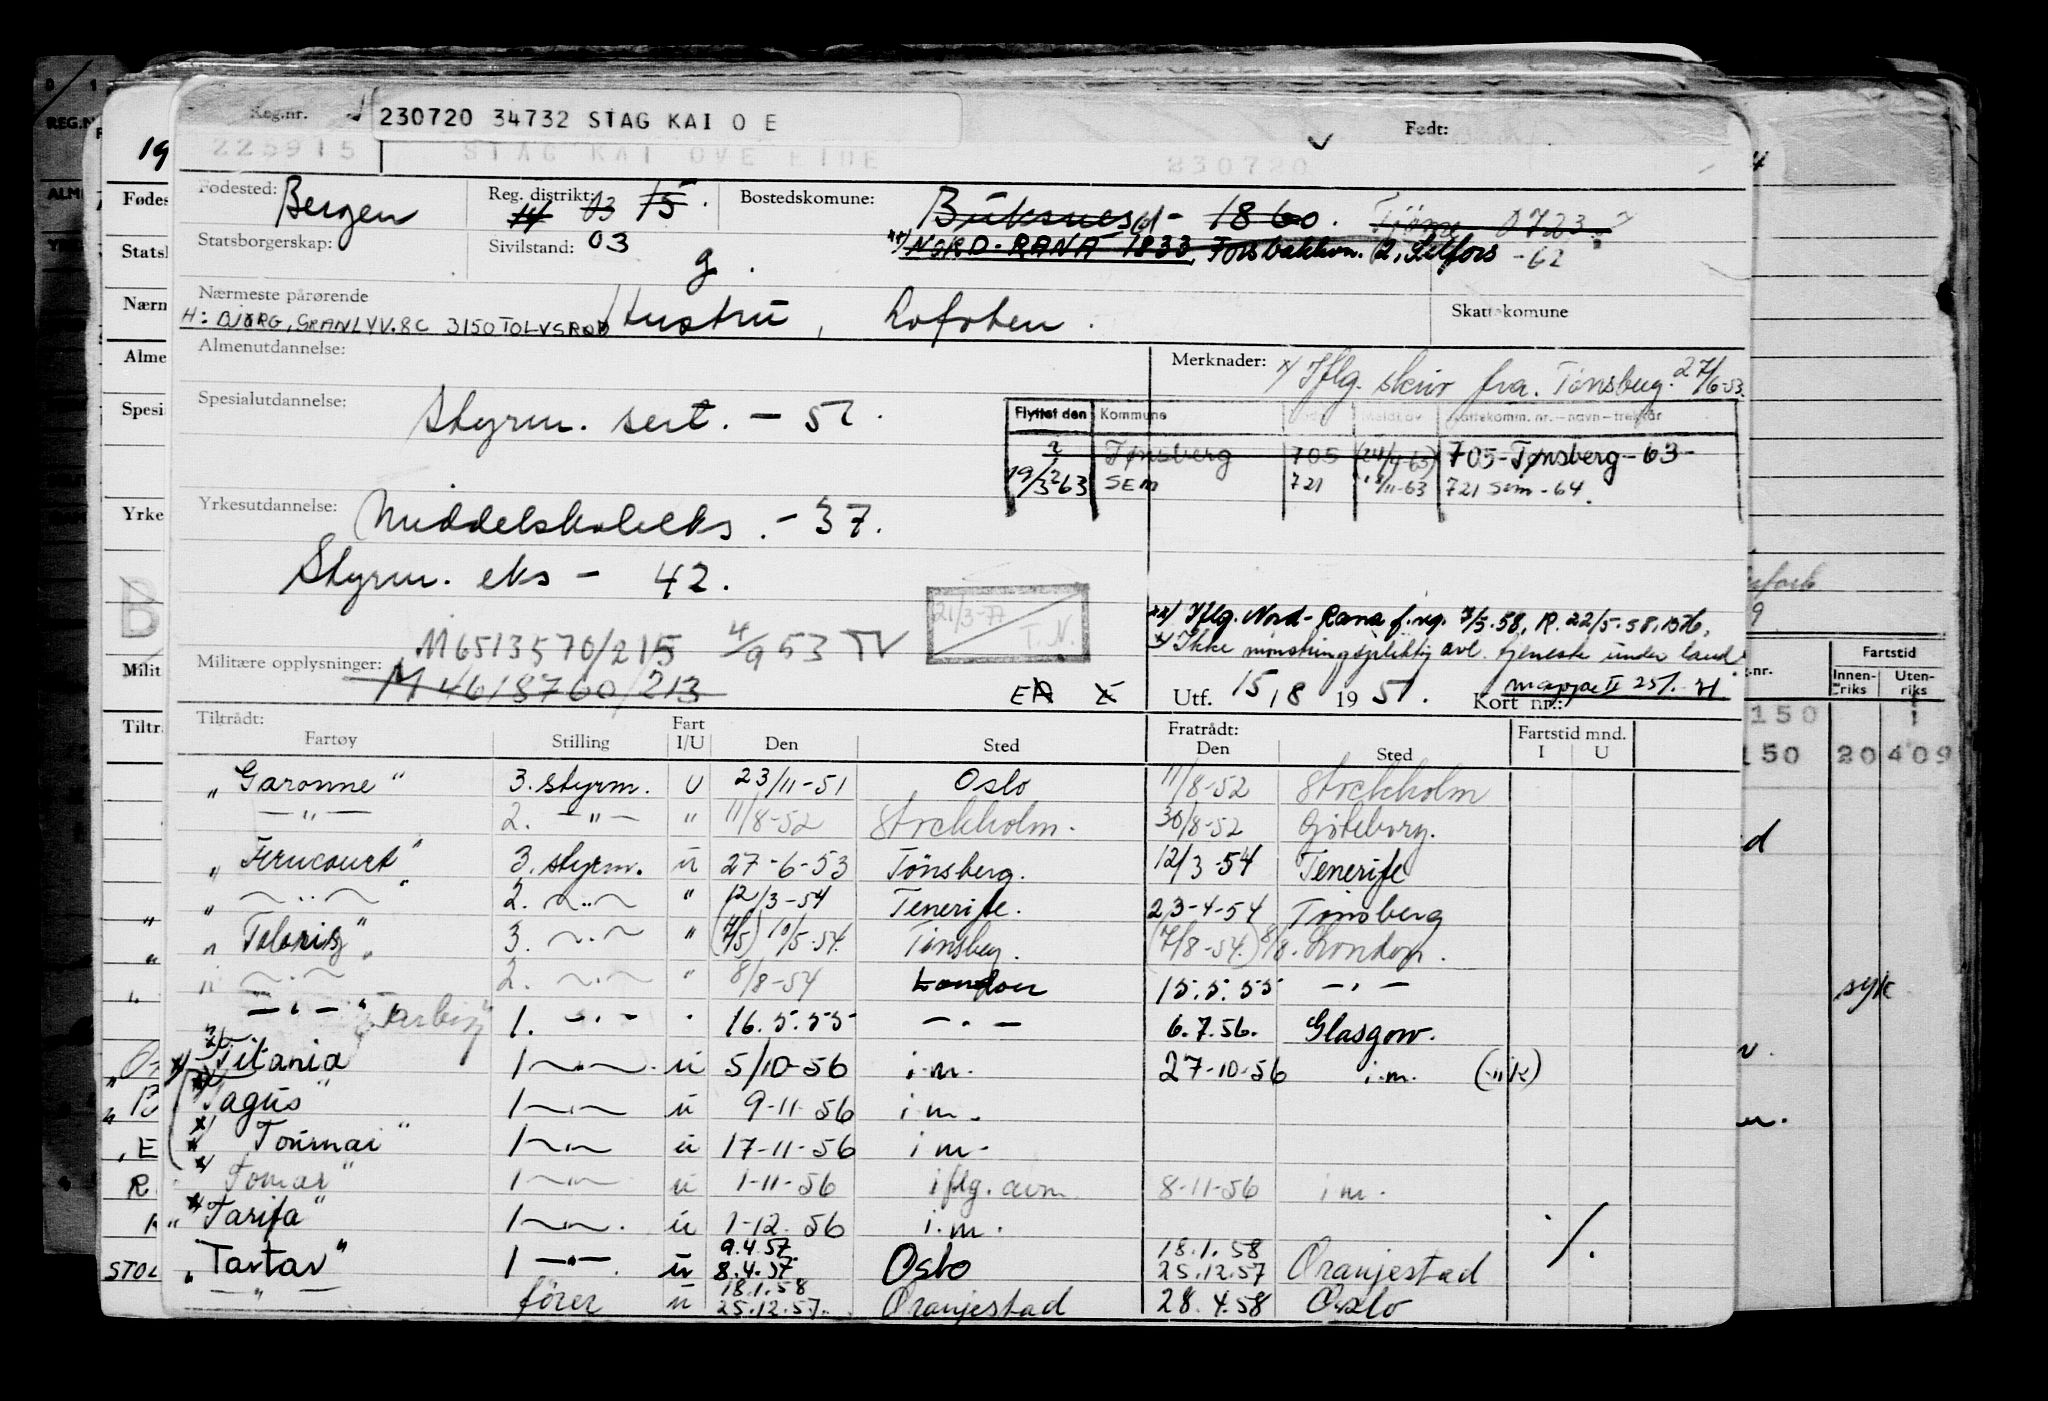 Reg.nr. 230720 34732 STAG KAI O E Født:
225915 STAG KAI OVE EIDE 230720
Fødested: Bergen Reg. distrikt: 14 03 15. Bostedskomune: Buksnes 1860. Tjöme 0723
Statsborgerskap: Sivilstand: 03 g. xx) NORD-RANA 1833 Forsbakkvn. 12, Selfors -62
Nærmeste pårørende Hustru, Lofoten. Skattekomune
H: BJØRG, GRANLVV. 8C 3150 TOLVSRØD
Almenutdannelse: Merknader: x) Iflg. skriv fra Tönsberg 27/6-53.
Spesialutdannelse: Styrm. sert. - 52.
Flyttet den Kommune Meldt av Skattekomm. nr. - navn - trekkår
? Tønsberg 705 (24/4-63) 705-Tønsberg-63-
19/3 63 SEM 721 18/11-63 721 Sem-64.
Yrkesutdannelse: Middelskoleeks. - 37.
Styrm. eks - 42.
21/3-77 T.N.
xx) Iflg. Nord-Rana f.reg. 7/5.58, R. 22/5.58, 1576,
x) Ikke mønstringspliktig avl. tjeneste under land
M6513570/215 4/9 53 TV
Militære opplysninger: M4618760/213 Utf. 15/8 1951. Kort nr.: mappe II 25/. 71
Tiltrådt: Fratrådt: Fartstid mnd.
Fartøy Stilling Fart I/U Den Sted Den Sted I U
"Garonne" 3. styrm. U 23/11-51 Oslo 11/8-52 Stockholm
-"- 2. -"- " 11/8-52 Stockholm. 30/8-52 Göteborg.
"Ferncourt" 3. styrm. u 27-6-53 Tönsberg. 12/3-54 Tenerife
" -"- " 2. -"- " 12/3-54 Tenerife. 23-4-54 Tønsberg
"Toloris" 3. -"- " (7/5) 10/5-54. Tønsberg. (7/8-54.) 8/8. London.
" -"- 2. -"- " 8/8-54 London 15.5.55 -"-
-"- 1. -"- " 16.5.55 -"- 6.7.56. Glasgow.
x) Titania 1 -"- u 5/10-56 i.m. 27-10-56 i.m.
x) Tagus" 1 -"- u 9-11-56 i m.
x) Tourmai" 1 -"- u 17-11-56 i m.
x) Tomar" 1 -"- u 1-11-56 iflg. avm. 8-11-56 i m.
x) "Tarifa" 1 -"- u 1-12-56 i.m.
"Tartar" 1 -"- u 9.4.57. 8.4.57 Oslo 18.1.58 25.12.57 Oranjestad
-"- förer u 18.1.58 25.12.57. Oranjestad 28.4.58 Oslo
Fartstid
Innenriks Utenriks
150
150 20 409
syk
STOL